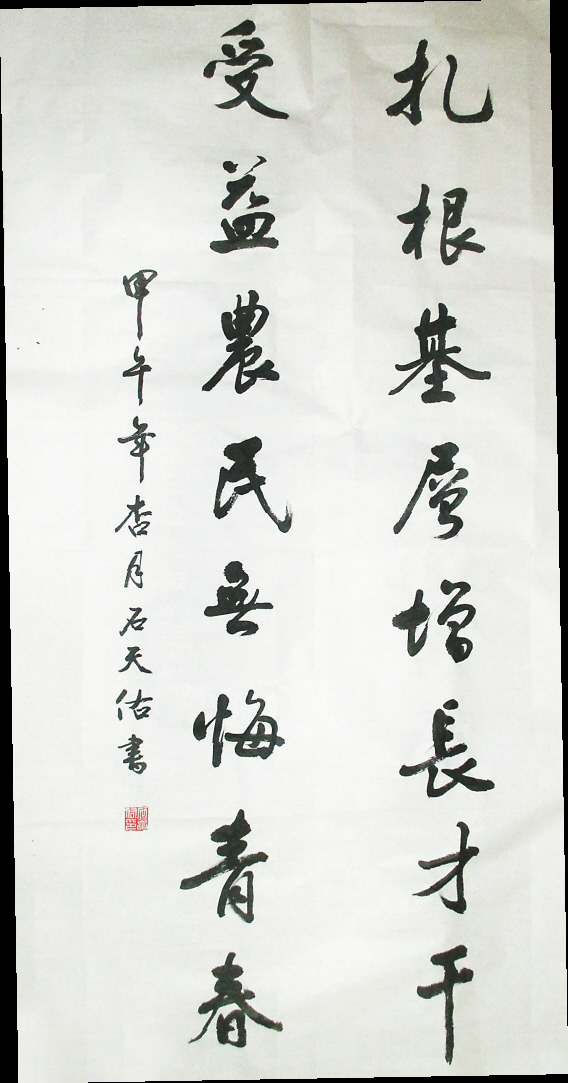 扎根基层增長才干
受益農民無悔青春
甲午年杏月石天佑書